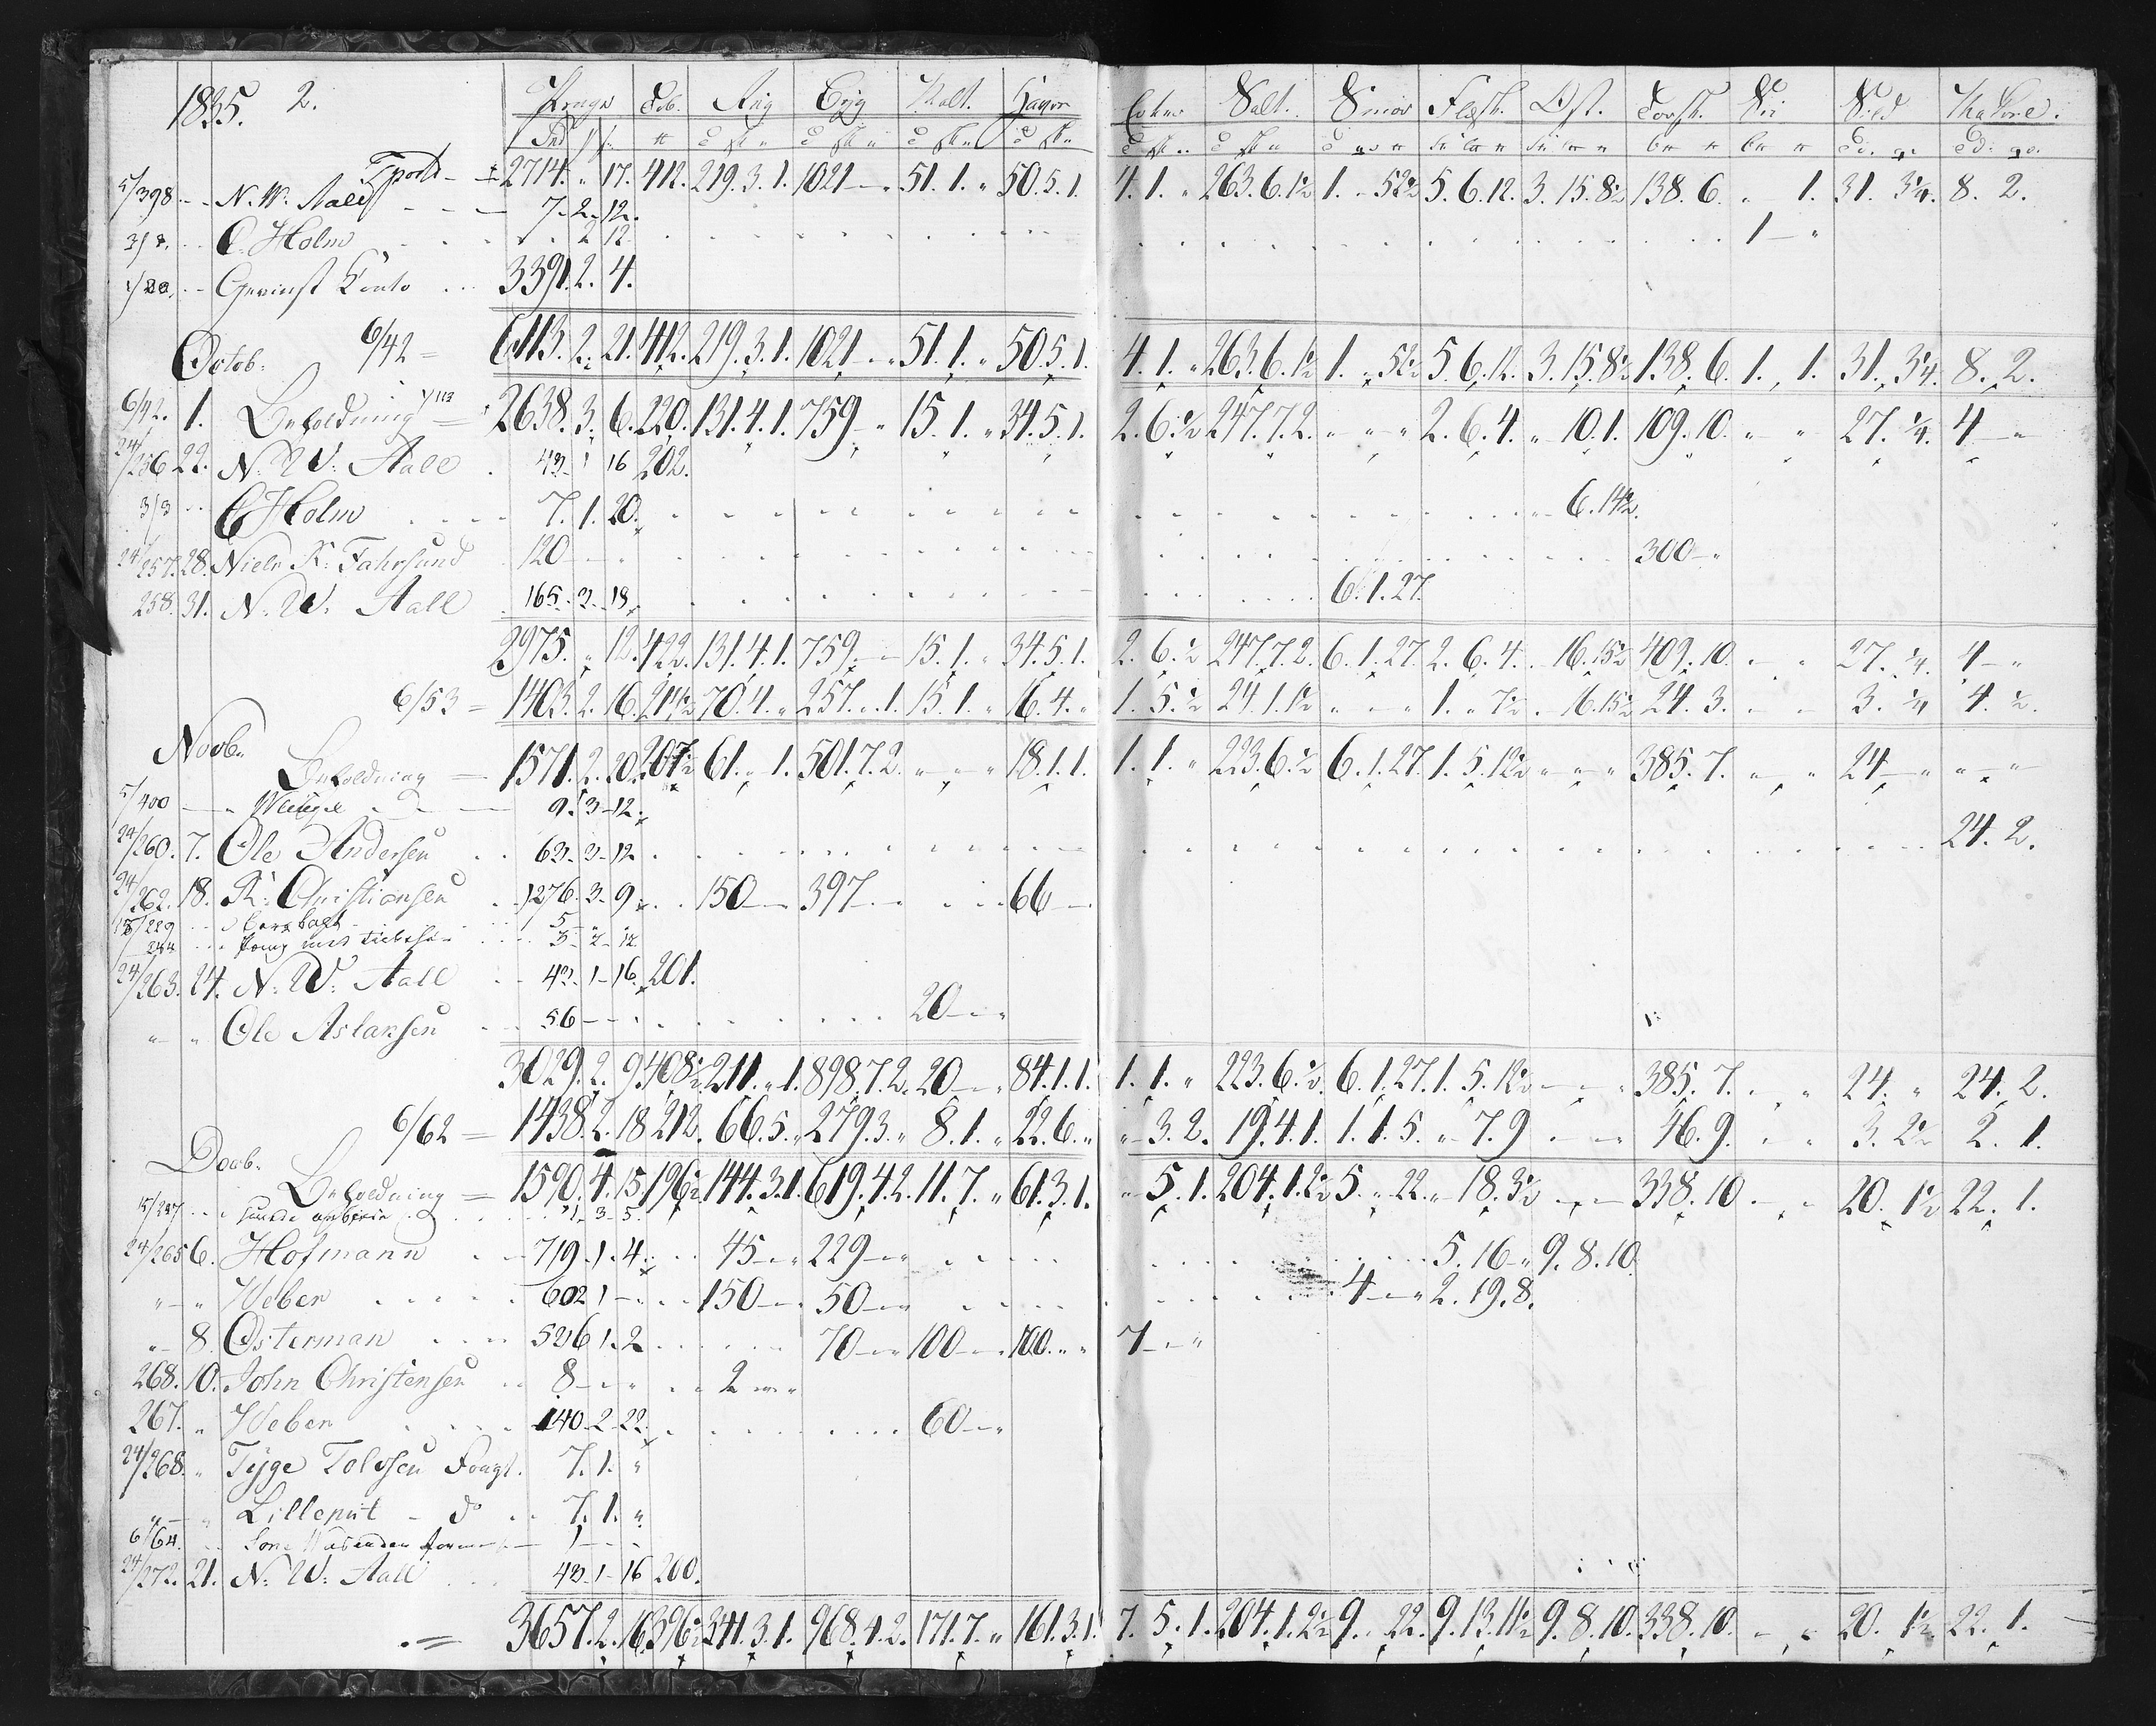 1835. 2. Penge Tob. Rug Byg Malt. Havre Erter Salt. Smør Flesk. Ost. Torsk. Sei Sild Makrel.
Tport 2714. " 17. 412. 219. 3. 1. 1021 — " 51. 1. " 50. 5. 1. 4. 1. " 263. 6. 1½ 1. " 52½ 5. 6. 12. 3. 15. 8½ 138. 6. " 1. 31. 3¼. 8. 2.
5/398 N. W. Aall 7. 2. 12.
3/3. C. Holm " 2 12 1 — "
1/20. Gevinst Conto 3391. 2. 4.
6/42 = 6113. 2. 21. 412. 219. 3. 1. 1021 — " 51. 1. " 50. 5. 1. 4. 1. " 263. 6. 1½ 1. " 52½ 5. 6. 12. 3. 15. 8½ 138. 6. 1. 1. 31. 3¼. 8. 2.
Octob:
6/42. 1. Beholdning = 2638. 3. 6. 220. 131. 4. 1. 759 — " 15. 1. " 34. 5. 1. 2. 6. ½ 247. 7. 2. " — " 2. 6. 4. " 10. 1. 109. 10. " — " 27. ¼. 4 — "
24/256 22. N. W. Aall 43 1 16 202.
3/3 C Holm 7. 1. 20. 6. 14½.
24/257. 28. Niels K. Fahrsund 120 — 300 — "
258. 31. N. W. Aall 165. 3. 18. 6. 1. 27.
2975. " 12. 422. 131. 4. 1. 759 — 15. 1. " 34. 5. 1. 2. 6. ½ 247. 7. 2. 6. 1. 27. 2. 6. 4. " 16. 15½ 409. 10. " — " 27. ¼. 4 — "
6/53 = 1403. 2. 16. 214½ 70. 4. " 257. " 1. 15. 1. " 16. 4. " 1. 5. ½ 24. 1. 1½ " — " 1. " 7½. " 16. 15½ 24. 3. " — " 3. ¼ 4. ½.
Novbr.
Beholdning = 1571. 2. 20. 207½ 61. " 1. 501. 7. 2. " — " 18. 1. 1. 1. 1. " 223. 6. ½ 6. 1. 27. 1. 5. 12½ " — " 385. 7. " — " 24 — " " — "
5/400 9. 3 12.
24/260. 7. Ole Andersen 63 3 12 24. 2.
24/262. 18. K. Christiansen 1276. 3 9 150 — 397 — 66 —
15/229 5
3 2 12
24/263. 24. N. W. Aall 43 1 16. 201.
" " Ole Aslaksen 56 — 20 — "
3029. 2. 9. 408½ 211. " 1. 898. 7. 2. 20 — " 84. 1. 1. 1. 1. " 223. 6. ½. 6. 1. 27. 1. 5. 12½ — " 385. 7. " " 24. " 24. 2.
6/62 = 1438. 2. 18 212. 66. 5. " 279. 3. " 8. 1. " 22. 6. " " 3. 2. 19. 4. 1. 1. 1. 5. " 7. 9 " — " 46. 9. " " 3. 2½ 2. 1.
Decb.
Beholdning = 1590. 4. 15. 196½ 144. 3. 1. 619. 4. 2. 11. 7. " 61. 3. 1. " 5. 1. 204. 1. 2½ 5. " 22. " 18. 3½ " — " 338. 10 " " 20. 1½ 22. 1.
15/237 1 3 5.
24/265 6. Hofmann 719 1. 4. 45 — " 229 — " 5. 16 — " 9. 8. 10.
" — " Weber 602 1 — 150 — " 50 — " 4 — " 2. 19. 8.
" — 8. Osterman 526 1. 2 70 — " 100 — " 100. " " 7 — "
268. 10. John Christensen 8 — " 2 — "
267. " Weber 140 2 22. 60 — "
24/268. " Tyge Tolvsen Fragt. 7. 1. "
" — " Lilleput — do 7. 1. "
6/64. 1 —
24/272. 21. N. W. Aall 43 1 16 200.
= 3657. 2. 16. 396½ 341. 3. 1. 968. 4. 2. 171. 7. " 161. 3. 1. 7. 5. 1. 204. 1. 2½ 9. " 22. 9. 13. 11½ 9. 8. 10. 338. 10. " — " 20. 1½ 22. 1.